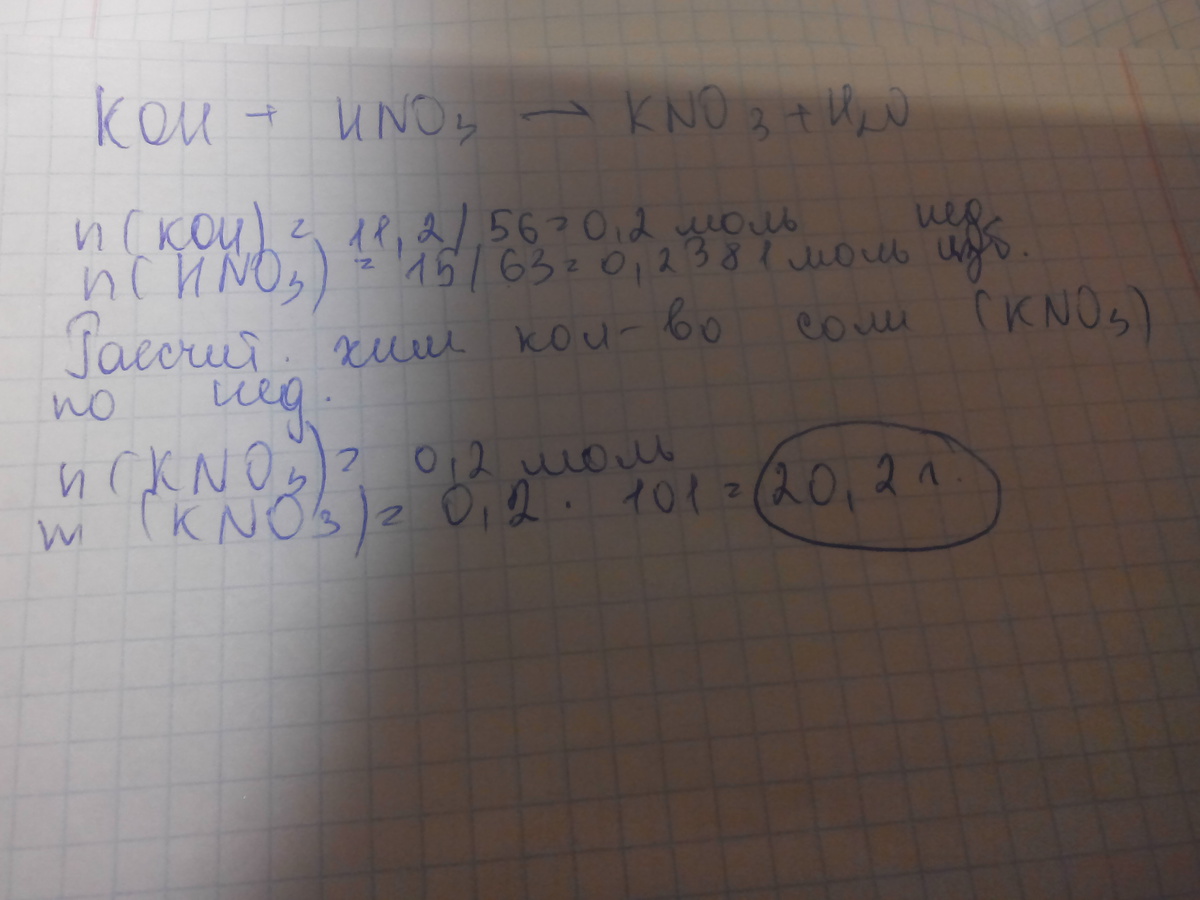 KOH + HNO3 → KNO3 + H2O
n(KOH) = 11,2/56=0,2 моль нед.
n(HNO3) = 15/63=0,2381 моль изб.
Рассчит. хим кол-во соли (KNO3)
по нед.
n(KNO3)= 0,2 моль
m (KNO3)= 0,2 · 101 = 20,2 г.